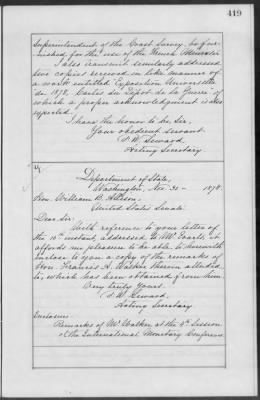 419
Superintendent of the Coast Survey, be for-
warded, for the use of the French Minister.
I also transmit similarly addressed
five copies received in like manner of
a work entitled Exposition Universelle
de 1878, Cartes du Dépôt de la Guerre of
which a proper acknowledgment is also
expected.
I have the honor to be, Sir,
Your obedient servant
F. W. Seward
Acting Secretary
Department of State,
Washington, Nov. 30 - 1878.
Hon. William B. Allison,
United States Senate.
Dear Sir,
With reference to your letter of
the 10th instant, addressed to Mr Evarts, it
affords me pleasure to be able to herewith
enclose to you a copy of the remarks of
Hon. Francis A. Walker therein alluded
to, which has been obtained from him.
Very truly yours
F. W. Seward,
Acting Secretary
Enclosure:
Remarks of Mr Walker, at the 5th Session
of the International Monetary Conference.